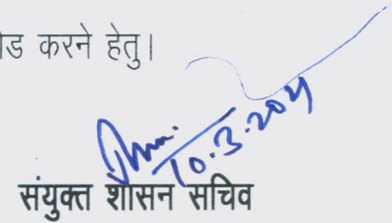 ड करने हेतु।
10.3.2021
संयुक्त शासन सचिव